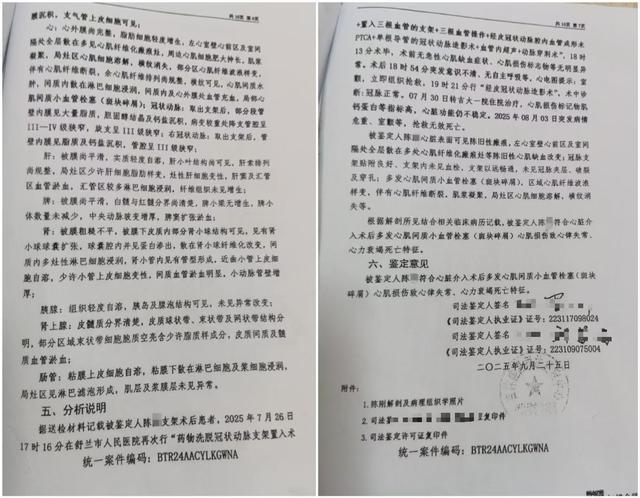 共10页 第6页
膜沉积，支气管上皮细胞可见；
心：心外膜尚完整，脂肪细胞轻度增生，左心室壁心前区及室间
隔处全层散在多处心肌纤维化瘢痕灶，周边心肌细胞肥大伸长，肌浆
凝聚，局灶区心肌细胞溶解，横纹消失，部分区心肌纤维波浪样变，
伴有心肌纤维断裂，余心肌纤维排列尚规整，横纹可见，心肌间质水
肿，间质内散在淋巴细胞浸润，间质内及心外膜处血管充血，局部心
肌间质小血管栓塞（斑块碎屑）；冠状动脉：取出支架后，部分段管
壁内膜见大量脂质，胆固醇结晶及钙盐沉积，病变较重处支管腔呈
III—IV级狭窄，旋支呈III级狭窄；右冠状动脉：取出支架后，管
壁内膜见脂质及钙盐沉积，管腔呈III级狭窄；
肝：被膜尚平滑，实质轻度自溶，肝小叶结构尚可见，肝索排列
尚规整，局灶区少许肝细胞脂肪样变，灶性肝细胞变性，肝窦及汇管
区血管淤血，汇管区较多淋巴细胞浸润，纤维组织未见增生；
脾：被膜尚平滑，白髓与红髓分界尚清楚，脾小梁无增生，脾小
体数量未减少，中央动脉玻变增厚，脾窦扩张淤血；
肾：被膜粗糙不平，被膜下皮质内部分肾小球结构可见，见有肾
小球球囊扩张，球囊腔内并见蛋白渗出，散在肾小球纤维化改变，间
质内多灶性淋巴细胞浸润，肾小管内见有管型形成，近曲小管上皮细
胞自溶，少许小管上皮细胞变性，间质血管淤血明显，小动脉管壁增
厚；
胰腺：组织轻度自溶，胰岛及腺泡结构可见，未见异常改变；
肾上腺：皮髓质分界清楚，皮质球状带、束状带及网状带结构分
明，部分区域束状带细胞胞质空亮含少许脂质样成分，皮质间质及髓
质血管淤血；
肠管：粘膜上皮自溶，粘膜下散在淋巴细胞及浆细胞浸润，
局灶区见淋巴滤泡形成，肌层及浆膜层未见异常。
五、分析说明
据送检材料记载被鉴定人陈 支架术后患者，2025年7月26日
17时16分在舒兰市人民医院再次行“药物洗脱冠状动脉支架置入术
统一案件编码：BTR24AACYLKGWNA
共10页 第7页
+置入三根血管的支架+三根血管操作+经皮冠状动脉腔内血管成形术
PTCA+单根导管的冠状动脉造影术+血管内超声+动脉穿刺术”，18时
13分术毕，术前无急性心肌缺血症状、心肌损伤标志物等无明显异
常。术后18时54分突发意识不清、无自主呼吸等，心电图提示：室
颤，立即组织抢救，19时21分行“经皮冠状动脉造影术”，术中诊
断：冠脉正常。07月30日转吉大一院住院治疗，心肌损伤标记物肌
钙蛋白等指标高，心脏功能仍不稳定。2025年08月03日突发病情
危重、室颤等，抢救无效死亡。
被鉴定人陈 心脏表面可见陈旧性瘢痕，左心室壁心前区及室间
隔处全层散在多处心肌纤维化瘢痕灶等陈旧性心肌缺血改变；冠脉支
架贴附良好、支架内未见血栓，支架以远畅通，未见冠脉夹层、破裂
及穿孔；多发心肌间质小血管栓塞（斑块碎屑），区域心肌纤维波浪
样变，伴有心肌纤维断裂，肌浆凝聚，局灶区心肌细胞溶解，横纹消
失等。
根据解剖所见结合相关临床病历记载，被鉴定人陈 符合心脏介
入术后多发心肌间质小血管栓塞（斑块碎屑）心肌损伤致心律失常、
心力衰竭死亡特征。
六、鉴定意见
被鉴定人陈 符合心脏介入术后多发心肌间质小血管栓塞（斑块
碎屑）心肌损伤致心律失常、心力衰竭死亡特征。
司法鉴定人签名
《司法鉴定人执业证》证号：223117098024
司法鉴定人签名
《司法鉴定人执业证》证号：223109075004
二〇二五年九月二十五日
附件：
1.陈刚解剖及病理组织学照片
2.司法鉴定人 证复印件
3.司法鉴定许可证复印件
统一案件编码：BTR24AACYLKGWNA